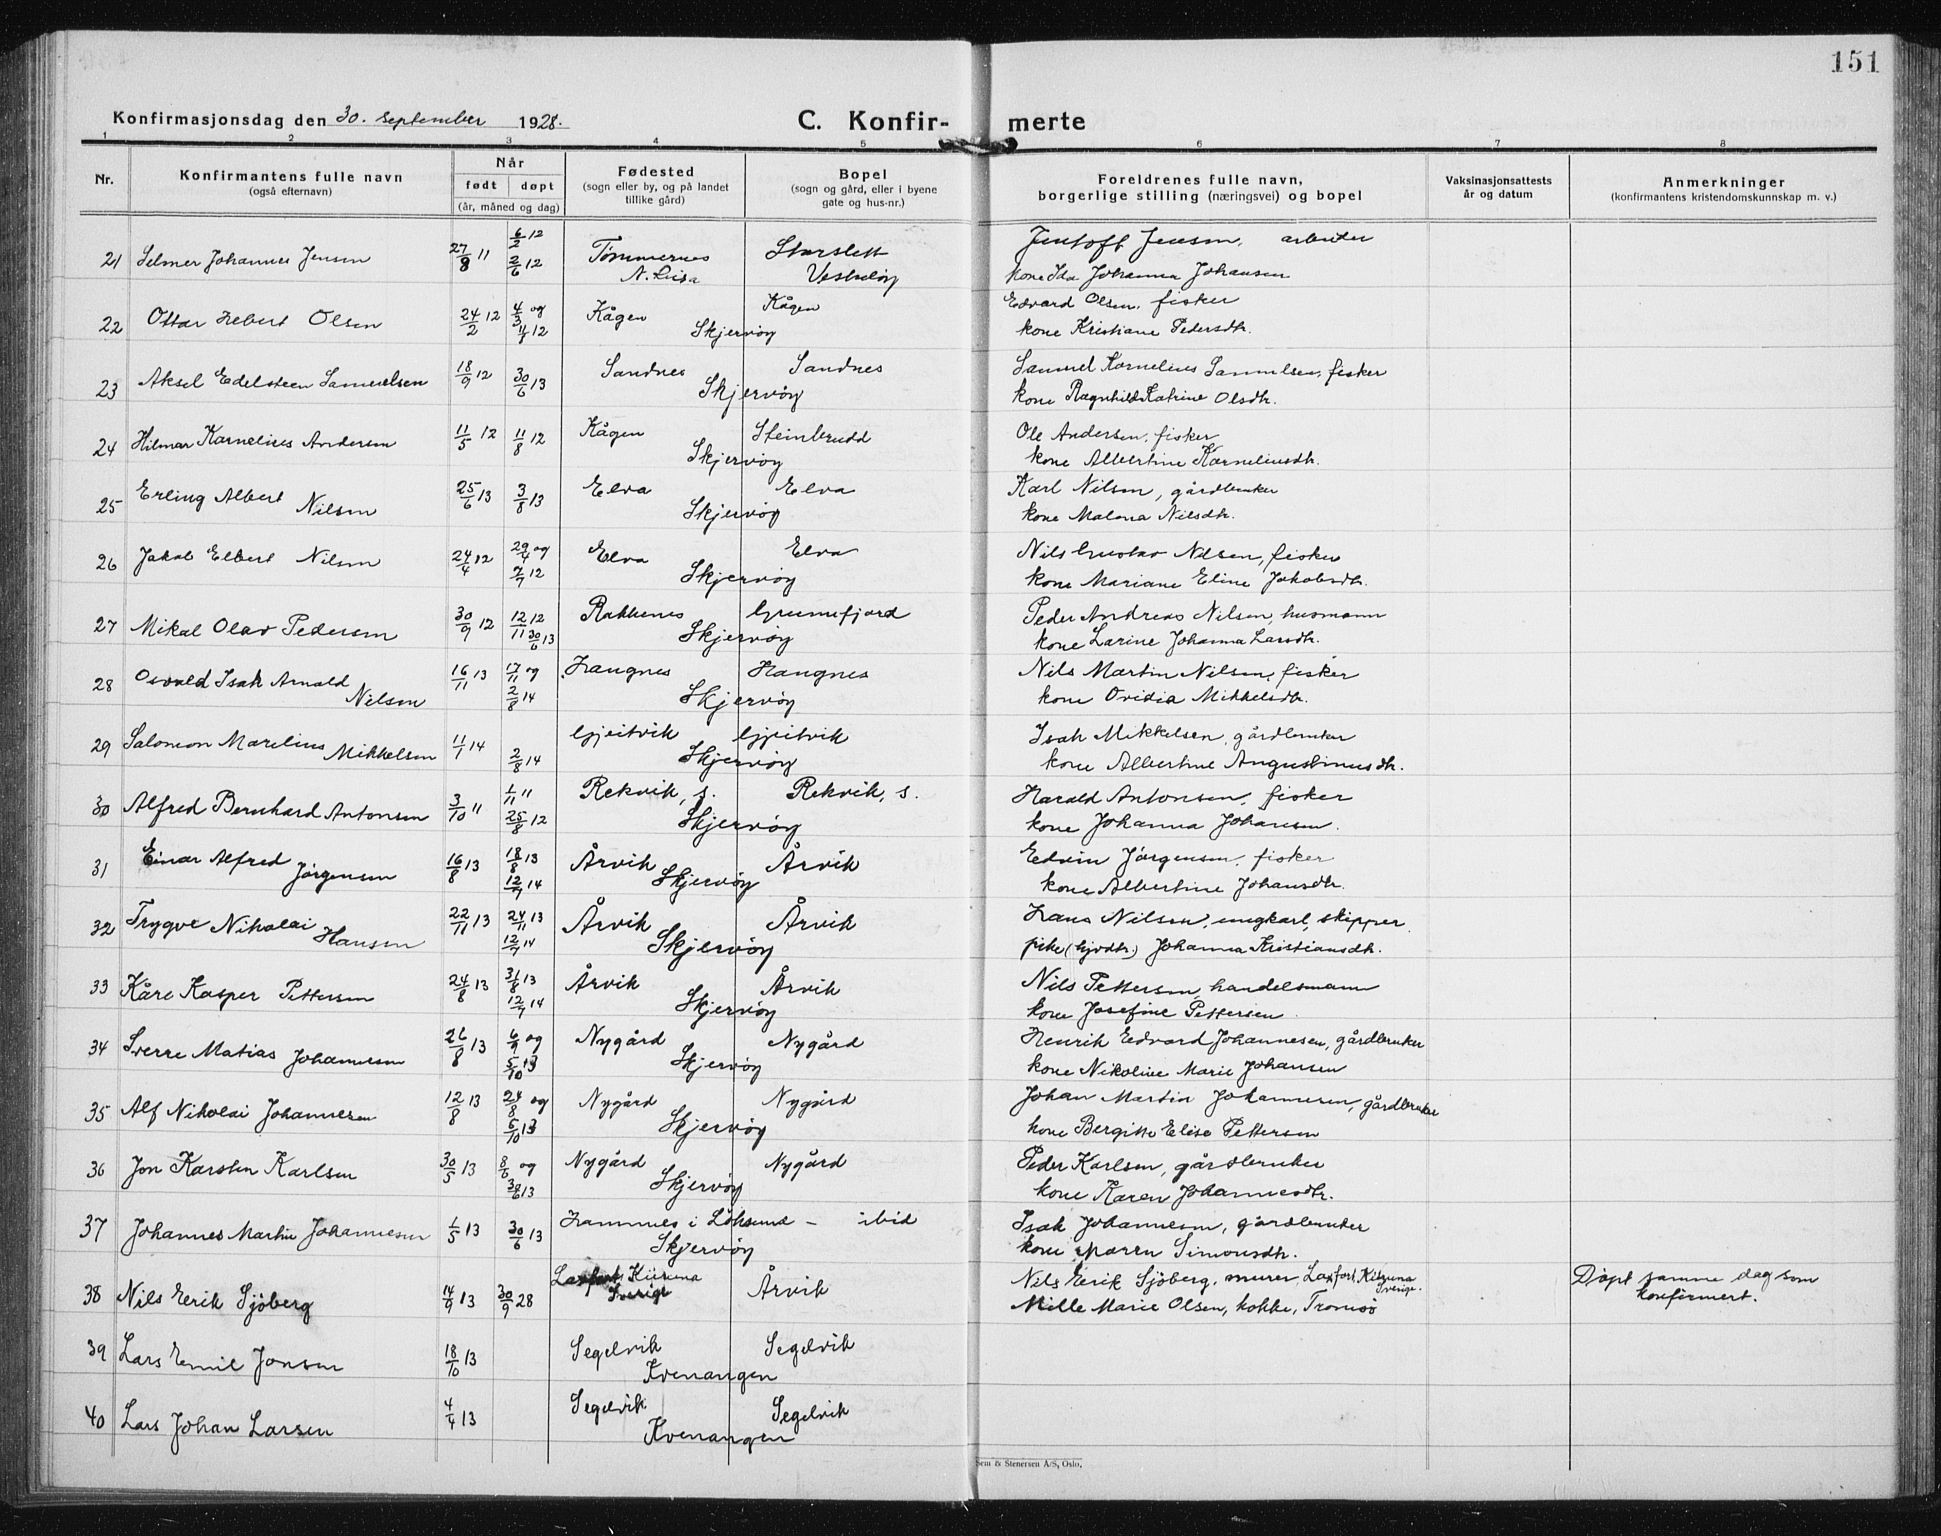 151
Konfirmasjonsdag den 30. september 1928.
C. Konfirmerte
1 2 3 4 5 6 7 8
Nr.
Konfirmantens fulle navn
(også efternavn)
Når
født døpt
(år, måned og dag)
Fødested
(sogn eller by, og på landet
tillike gård)
Bopel
(sogn og gård, eller i byene
gate og hus-nr.)
Foreldrenes fulle navn,
borgerlige stilling (næringsvei) og bopel
Vaksinasjonsattests
år og datum
Anmerkninger
(konfirmantens kristendomskunnskap m. v.)
21 Selmer Johannes Jensen 27/8 11 6/2 12 2/6 12 Tømmernes Storslett Jensen, arbeider
N. Vesteløy kone Ida Johanna Johansen
22 Ottar Hebert Olsen 24/2 12 4/3 og 12 Kågen Kågen Edvard Olsen, fisker
Skjervøy kone Kristiane Pedersdtr.
23 Aksel Edelsteen Samuelsen 18/9 12 30/6 13 Sandnes Sandnes Samuel Kornelius Samulsen, fisker
Skjervøy kone Ragnhild Katrine Olsdtr.
24 Hilmar Karnelius Andersen 11/5 12 11/8 12 Kågen Steinbrudd Ole Andersen, fisker
Skjervøy kone Albertine Karneliusdtr.
25 Erling Albert Nilsen 25/6 13 3/8 13 Elva Elva Karl Nilsen, gårdbruker
Skjervøy kone Malena Nilsdtr.
26 Jakob Elbert Nilsen 24/4 12 29/4 og 7/7 12 Elva Elva Nils Gustav Nilsen, fisker
Skjervøy kone Mariane Eline Jakobsdtr.
27 Mikal Olav Pedersen 30/9 12 12/11 12 30/6 13 Rakkenes Grunnfjord Peder Andreas Nilsen, husmann
Skjervøy kone Larine Johanna Larsdtr.
28 Osvald Isak Arnald Nilsen 16/11 13 17/11 og 2/8 14 Haugnes Haugnes Nils Martin Nilsen, fisker
Skjervøy kone Ovidia Mikkelsdtr.
29 Salomon Marelius Mikkelsen 11/1 14 2/8 14 Gjeitvik Gjeitvik Isak Mikkelsen, gårdbruker
Skjervøy kone Albertine Angustinusdtr.
30 Alfred Bernhard Antonsen 3/10 11 1/11 11 25/8 12 Rekvik, s. Rekvik, s. Harald Antonsen, fisker
Skjervøy kone Johanna Johansen.
31 Einar Alfred Jørgensen 16/8 13 18/8 13 12/7 14 Årvik Årvik Edvin Jørgensen, fisker
Skjervøy kone Albertine Johansdtr.
32 Trygve Nikolai Hansen 22/11 13 24/11 13 12/7 14 Årvik Årvik Hans Nilsen, ungkarl, skipper.
Skjervøy pike (gjvdtr.) Johanna Kristiansdtr.
33 Kåre Kasper Pettersen 24/8 13 31/8 13 12/7 14 Årvik Årvik Nils Pettersen, handelsmann
Skjervøy kone Josefine Pettersen
34 Sverre Matias Johannesen 26/8 13 6/9 og 5/10 13 Nygård Nygård Henrik Edvard Johannesen, gårdbruker
Skjervøy kone Nikoline Marie Johansen
35 Alf Nikolai Johannesen 12/8 13 24/8 og 5/10 13 Nygård Nygård Johan Martin Johannesen, gårdbruker
Skjervøy kone Bergitte Elise Pettersen
36 Jon Karsten Karlsen 30/5 13 8/6 og 30/6 13 Nygård Nygård Peder Karlsen, gårdbruker
Skjervøy kone Karen Johannesdtr.
37 Johannes Martin Johannesen 1/5 13 30/6 13 Hamnes i Løksund – ibid Isak Johannesen, gårdbruker
Skjervøy kone Maren Simonsdtr.
38 Nils Eerik Sjöberg 14/9 13 30/9 28 Laxfort, Kiiruna Sverige Årvik Nils Eerik Sjöberg, murer, Laxfort, Kiiruna Sverige. Døpt samme dag som
Mille Marie Olsen, kokke, Tromsø konfirmert.
39 Lars Emil Jonsen 18/10 13 Segelvik Segelvik
Kvenangen
40 Lars Johan Larsen 4/4 13 Segelvik Segelvik
Kvenangen
Sem & Stenersen A/S, Oslo.